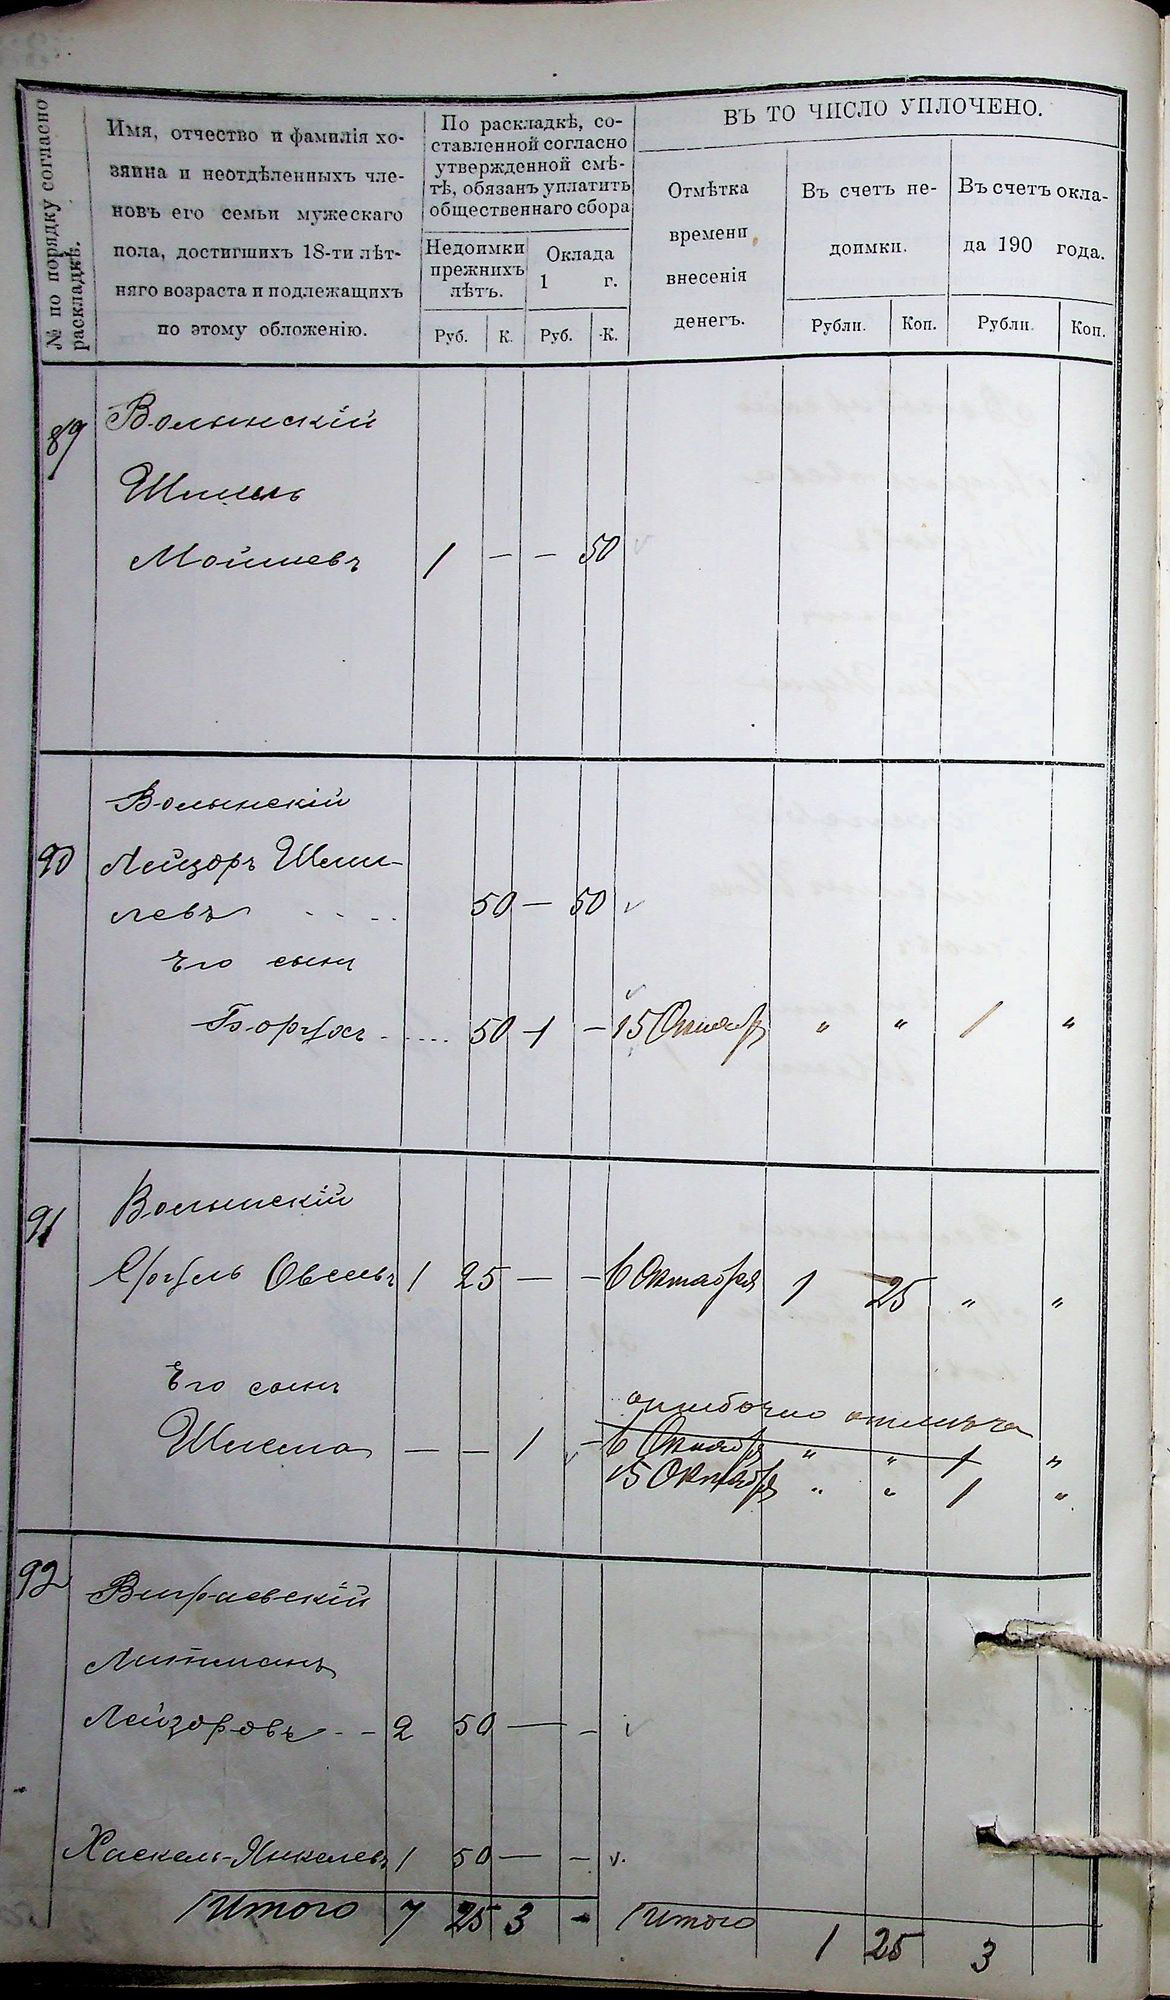 № по порядку согласно
раскладкѣ.
Имя, отчество и фамилія хо-
зяина и неотдѣленныхъ чле-
новъ его семьи мужескаго
пола, достигшихъ 18-ти лѣт-
няго возраста и подлежащихъ
по этому обложенію.
По раскладкѣ, со-
ставленной согласно
утвержденной смѣ-
тѣ, обязанъ уплатить
общественнаго сбора
Недоимки
прежнихъ
лѣтъ.
Оклада
1 г.
Руб. К. Руб. К.
ВЪ ТО ЧИСЛО УПЛОЧЕНО.
Отмѣтка
времени
внесенія
денегъ.
Въ счетъ не-
доимки.
Рубли. Коп.
Въ счетъ окла-
да 190 года.
Рубли. Коп.
89 Волынскій
Шмиль
Мойшевъ 1 — — 50 v
90 Волынскій
Лейзоръ Шми-
левъ .... 50 — 50 v
Его сынъ
Борухъ ..... 50 1 — 15 Октябр " " 1 "
91 Волынскій
Сруль Овсѣевъ 1 25 — — 6 Октября 1 25 " "
Его сынъ
ошибочно отмѣтка
Шлема — — 1 — 6 Октября " " 1 "
15 Октября " " 1 "
92
Литманъ
Лейзоровъ -- 2 50 — — v
Хаскель-Янкелевъ 1 50 — — v.
Итого 7 25 3 - Итого 1 25 3